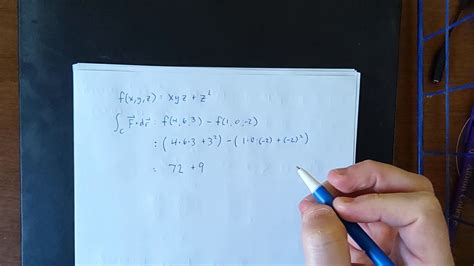 f(x,y,z) = xyz + z²
∫_C F⃗·dr⃗ = f(4,6,3) - f(1,0,-2)
= (4·6·3 + 3²) - (1·0·(-2) + (-2)²)
= 72 + 9